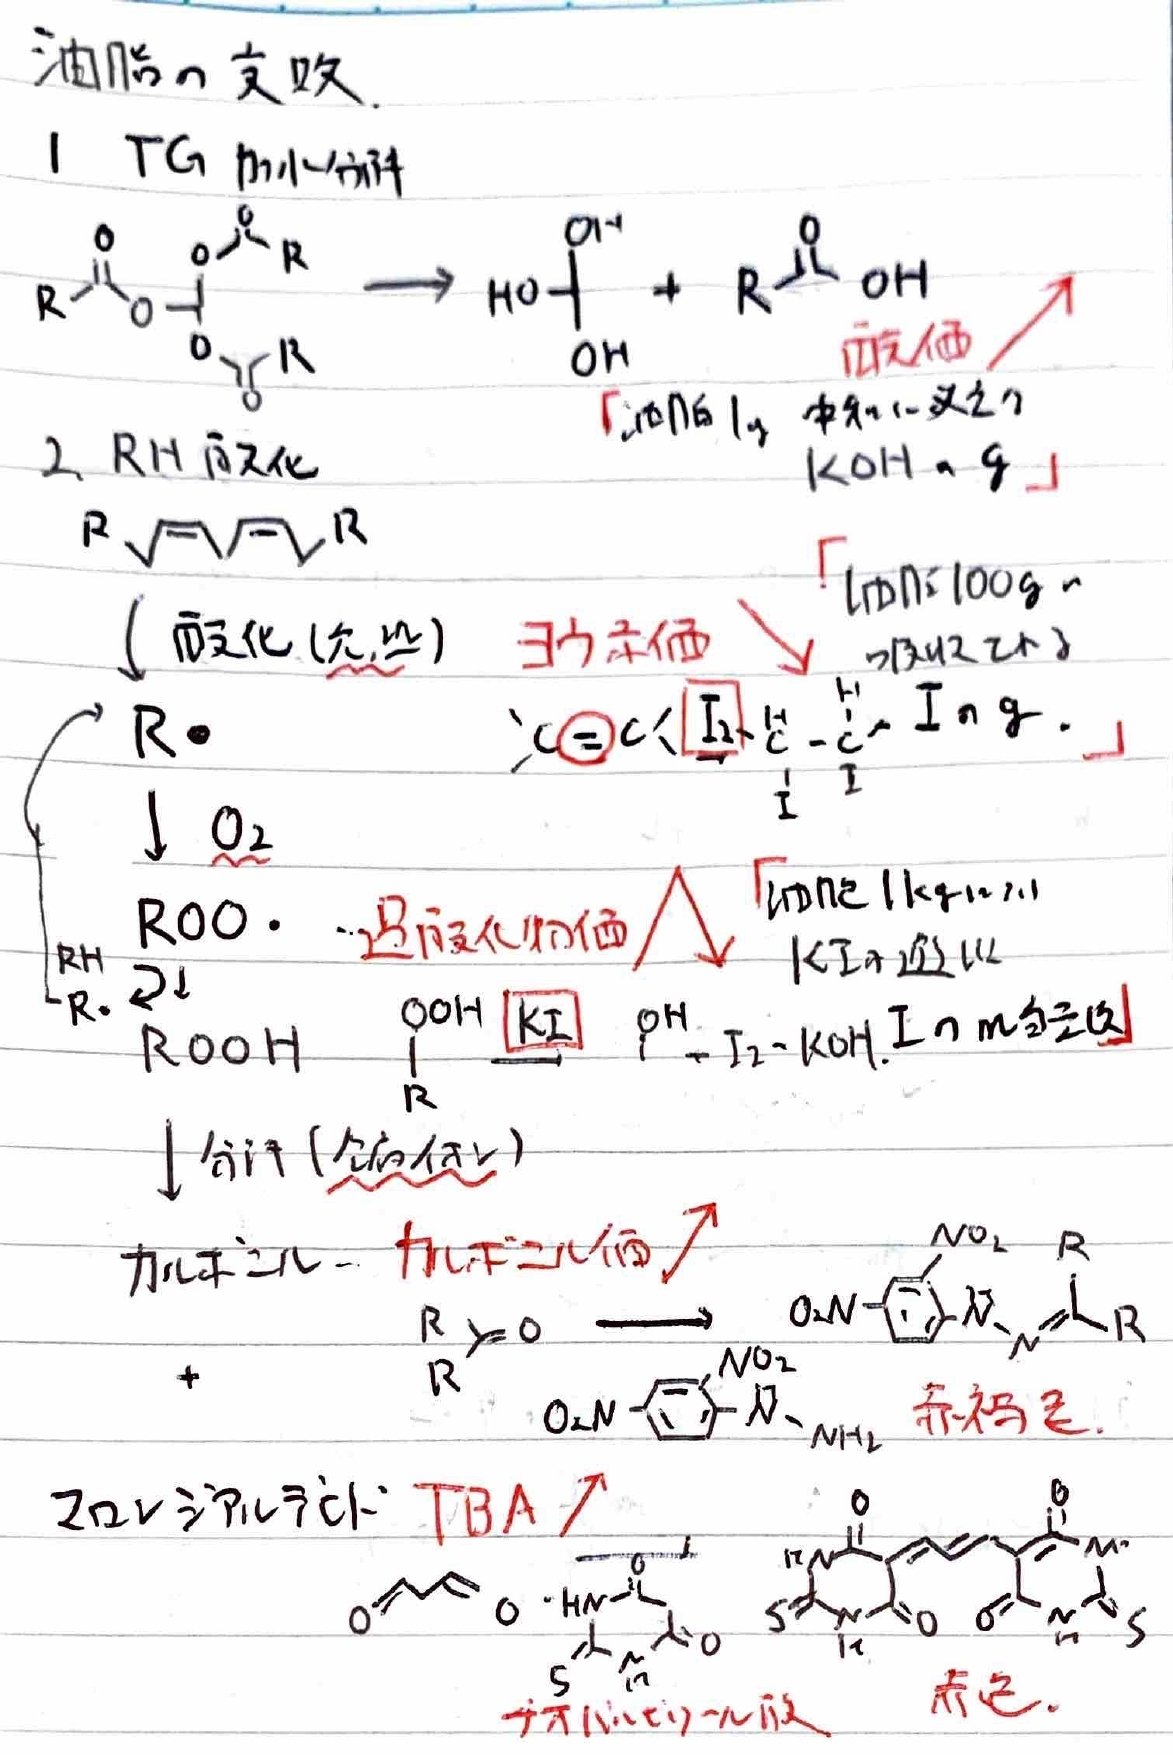 油脂の変敗.
1 TG 加水分解
R O O O O R → OH HO OH + R O OH
O R O
酸価
「油脂1g 中和に必要な
KOHのg」
2. RH 酸化
R R
↓ 酸化(光, 熱) ヨウ素価 「油脂100gに
吸収される
R• C=C I2 H C - H C I I Iのg.」
↓ O2
ROO・ …過酸化物価 「油脂1kgにおけ
RH KIの遊離
R・
ROOH OOH R KI OH - I2 - KOH. Iのm当量数」
↓ 分解(金属イオン)
カルボニル カルボニル価
R R =O → O2N NO2 N N R R
+ O2N NO2 N NH2 赤褐色.
マロンジアルデヒド TBA
O O HN O O S N H HN O O S N H O O N H S
チオバルビツール酸 赤色.